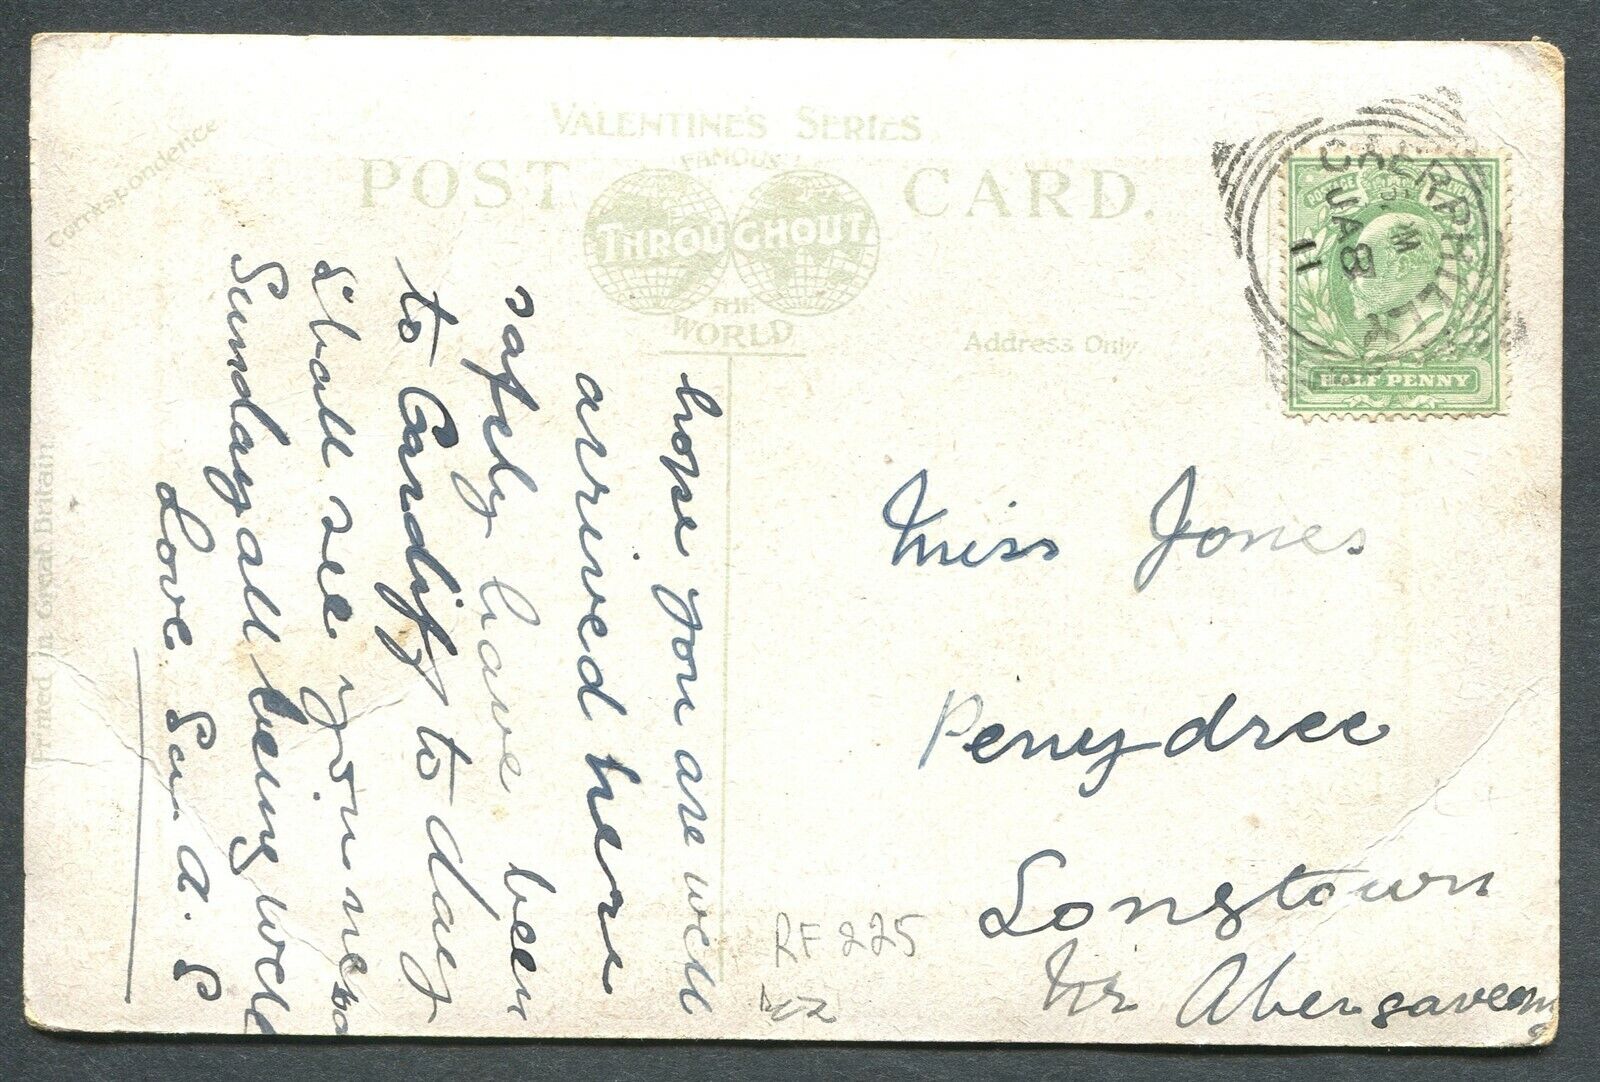 Correspondence
VALENTINE'S SERIES
POST CARD.
FAMOUS
THROUGHOUT
THE
WORLD
Address Only.
Printed in Great Britain
CAERPHILLY
JA 8
11
HALF PENNY
hope you are well
arrived here
safely have been
to Cardiff to day
Shall see you
Sunday all being well
Love A. S
Miss Jones
Penydree
Longtown
Nr Abergavenny
RF 225